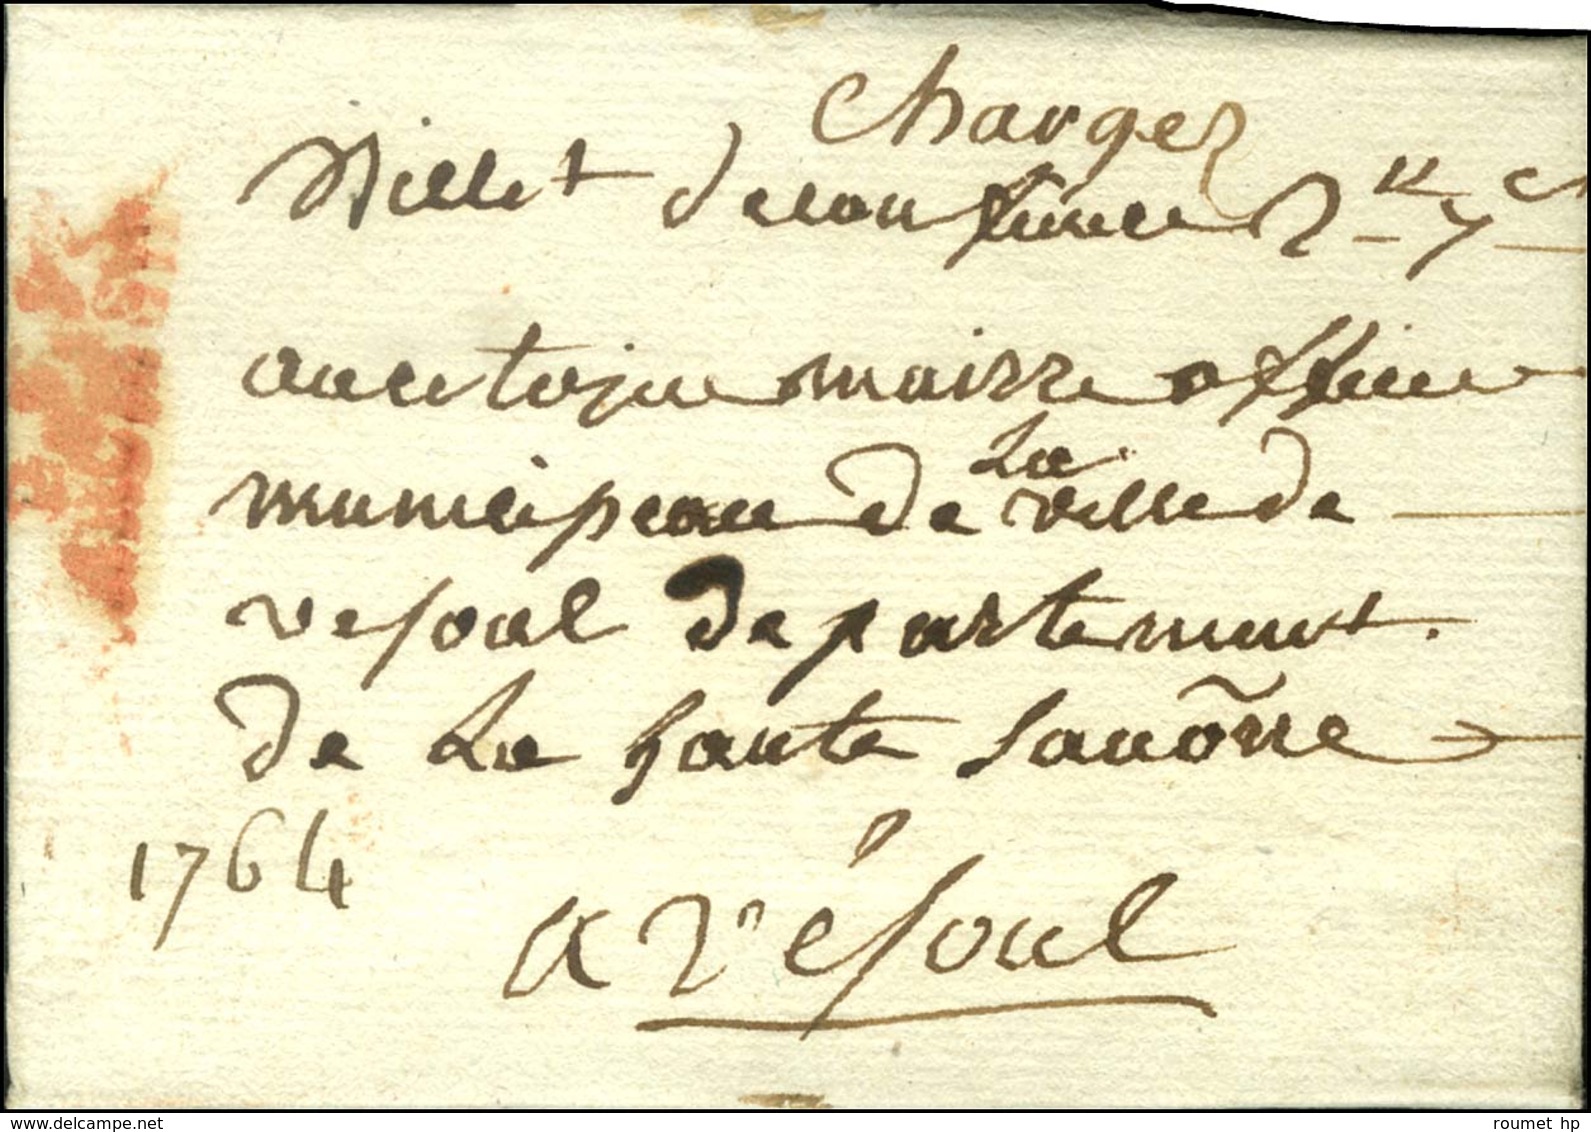 Chargez
Billet de confience 2
au citojen mairre officie
municipeau de la ville de
vesoul departement
de La haute Sauõne
1764
a vésoul
delcampe.net
roumet hp